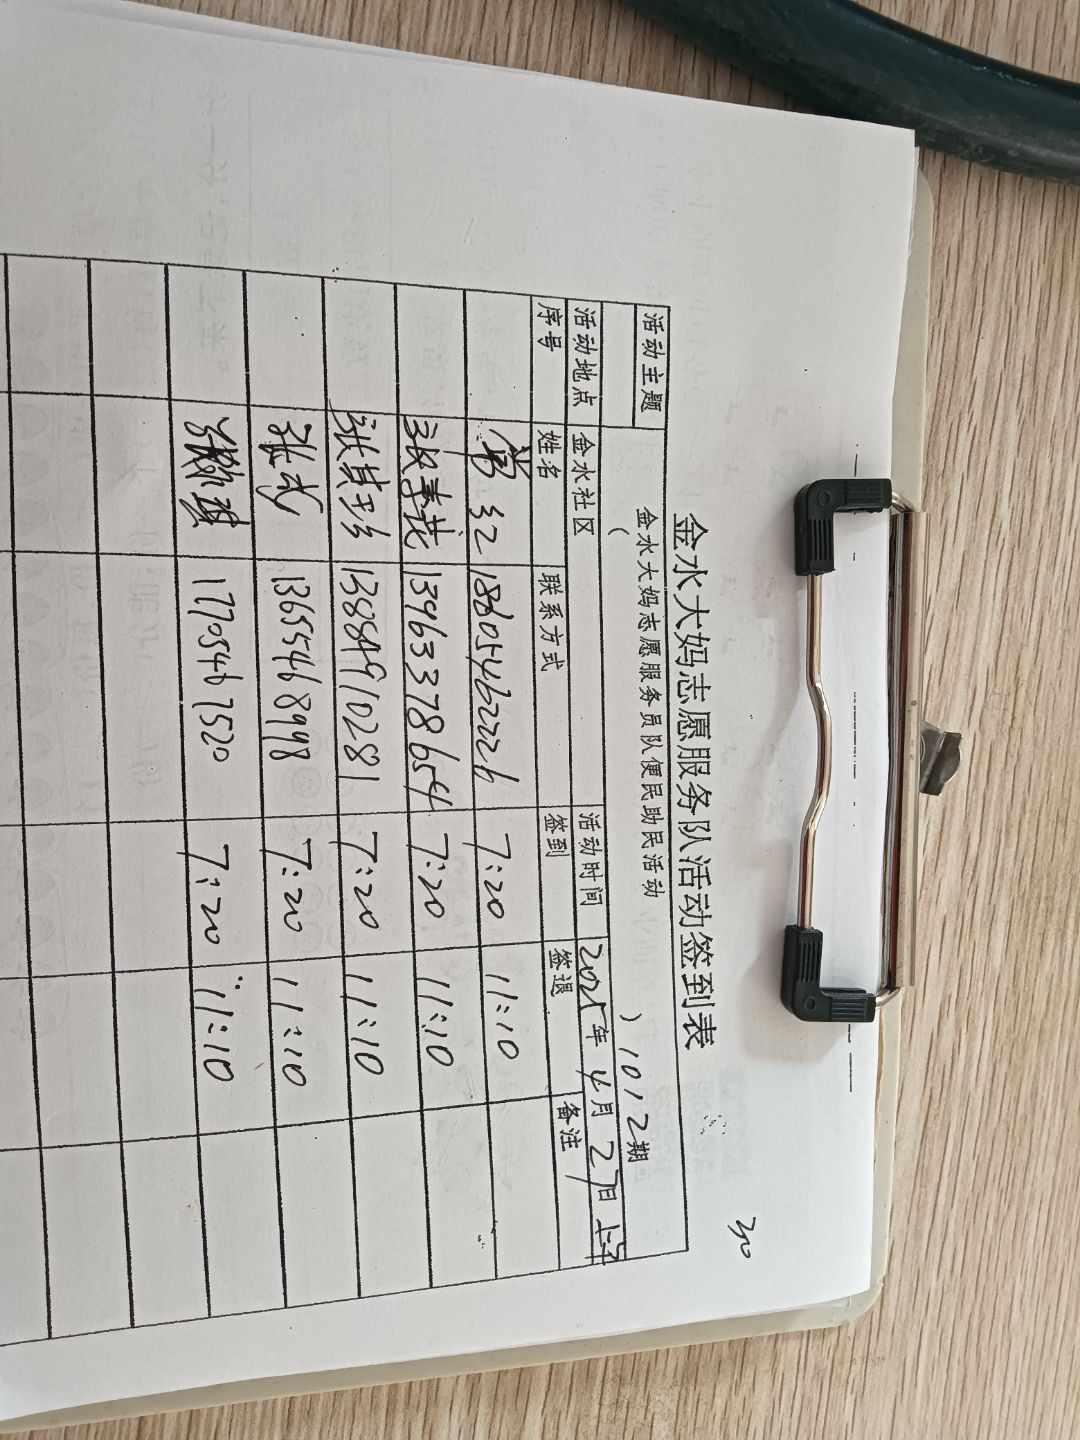 30
金水大妈志愿服务队活动签到表
活动主题 金水大妈志愿服务员队便民助民活动
( ) 1012期
活动地点 金水社区 活动时间 2025年4月27日上午
序号 姓名 联系方式 签到 签退 备注
18605462226 7:20 11:10
张春花 13963378654 7:20 11:10
张其珍 13884910281 7:20 11:10
张 13655468998 7:20 11:10
17705467520 7:20 11:10